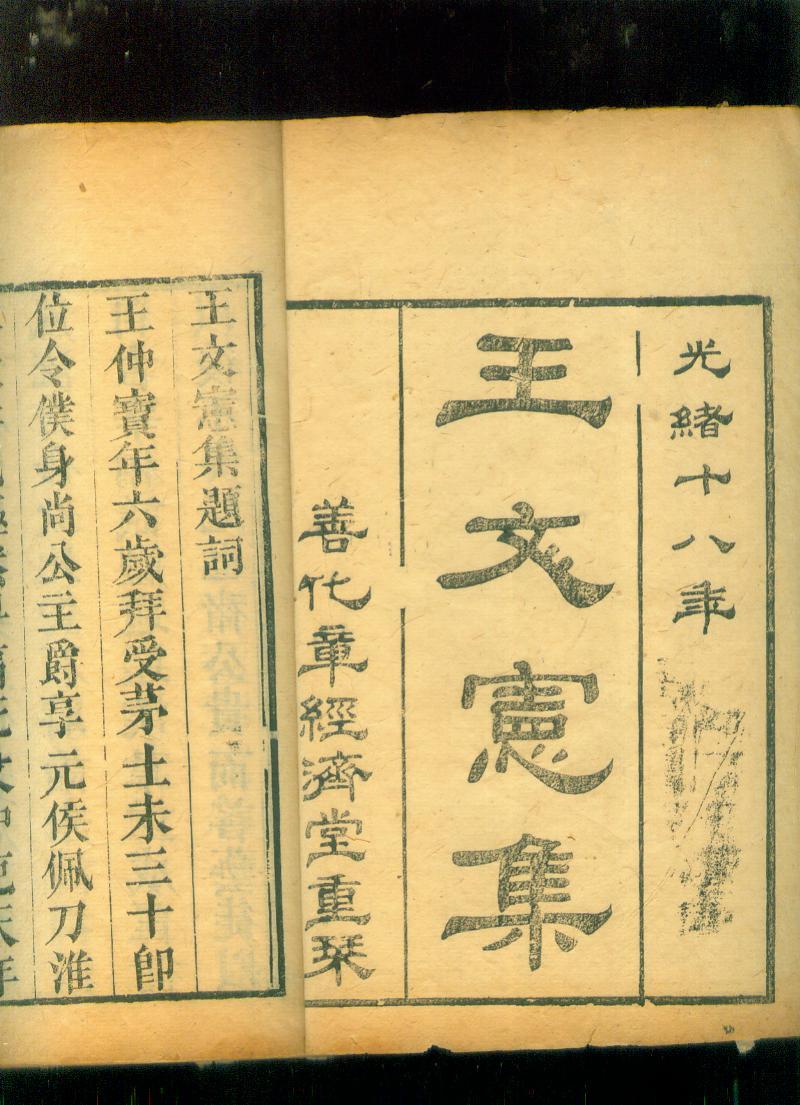 光緒十八年
王文憲集
善化章經濟堂重栞
王文憲集題詞
王仲寶年六歲拜受茅土未三十即
位令僕身尚公主爵享元侯佩刀淮